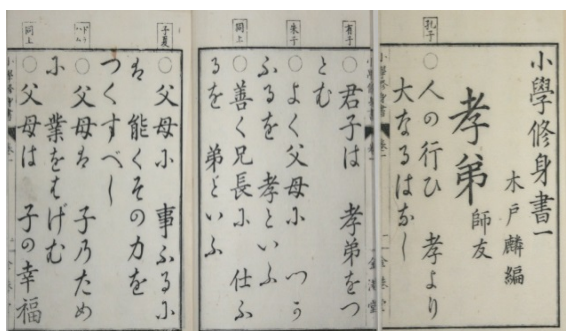 小學修身書一
木戸麟編
孝弟
師友
孔子
○人の行ひ 孝より
大なるはなし
小學修身書
卷一
一
金港堂
有子
○君子は 孝弟をつ
とむ
朱子
○よく父母に つか
ふるを 孝といふ
同上
○善く兄長に 仕ふ
るを 弟といふ
子夏
○父母に 事ふるに
は 能くその力を
つくすべし
○父母は 子のため
に 業をはげむ
同上
○父母は 子の幸福